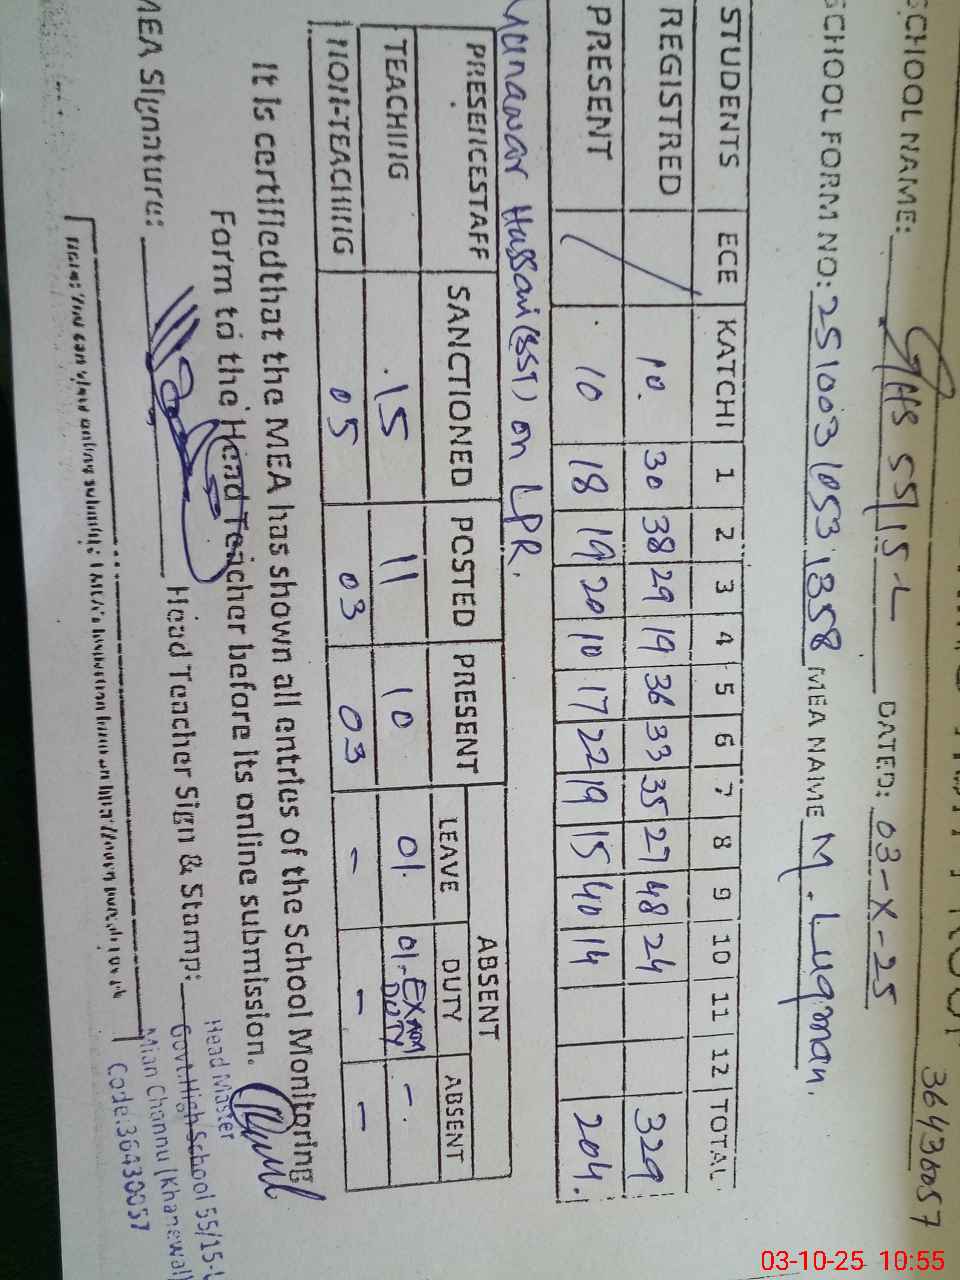 36430057
SCHOOL NAME: GHS 55/15-L DATED: 03-X-25
SCHOOL FORM NO: 25100310531358 MEA NAME M. Luqman.
STUDENTS ECE KATCHI 1 2 3 4 5 6 7 8 9 10 11 12 TOTAL
REGISTRED / 10. 30 38 29 19 36 33 35 27 48 24 329
PRESENT / 10 18 19 20 10 17 22 19 15 40 14 204.
Munawar Hussain (SST) on LPR.
PRESENCESTAFF SANCTIONED POSTED PRESENT ABSENT
LEAVE DUTY ABSENT
TEACHING 15 11 10 01. 01-Exam DUTY -
NON-TEACHING 05 03 03 - - -
It is certifiedthat the MEA has shown all entries of the School Monitoring
Form to the Head Teacher before its online submission.
MEA Signature: Head Teacher Sign & Stamp:
Head Master
Govt.High School 55/15-L
Mian Channu (Khanewal)
Code:36430057
03-10-25 10:55